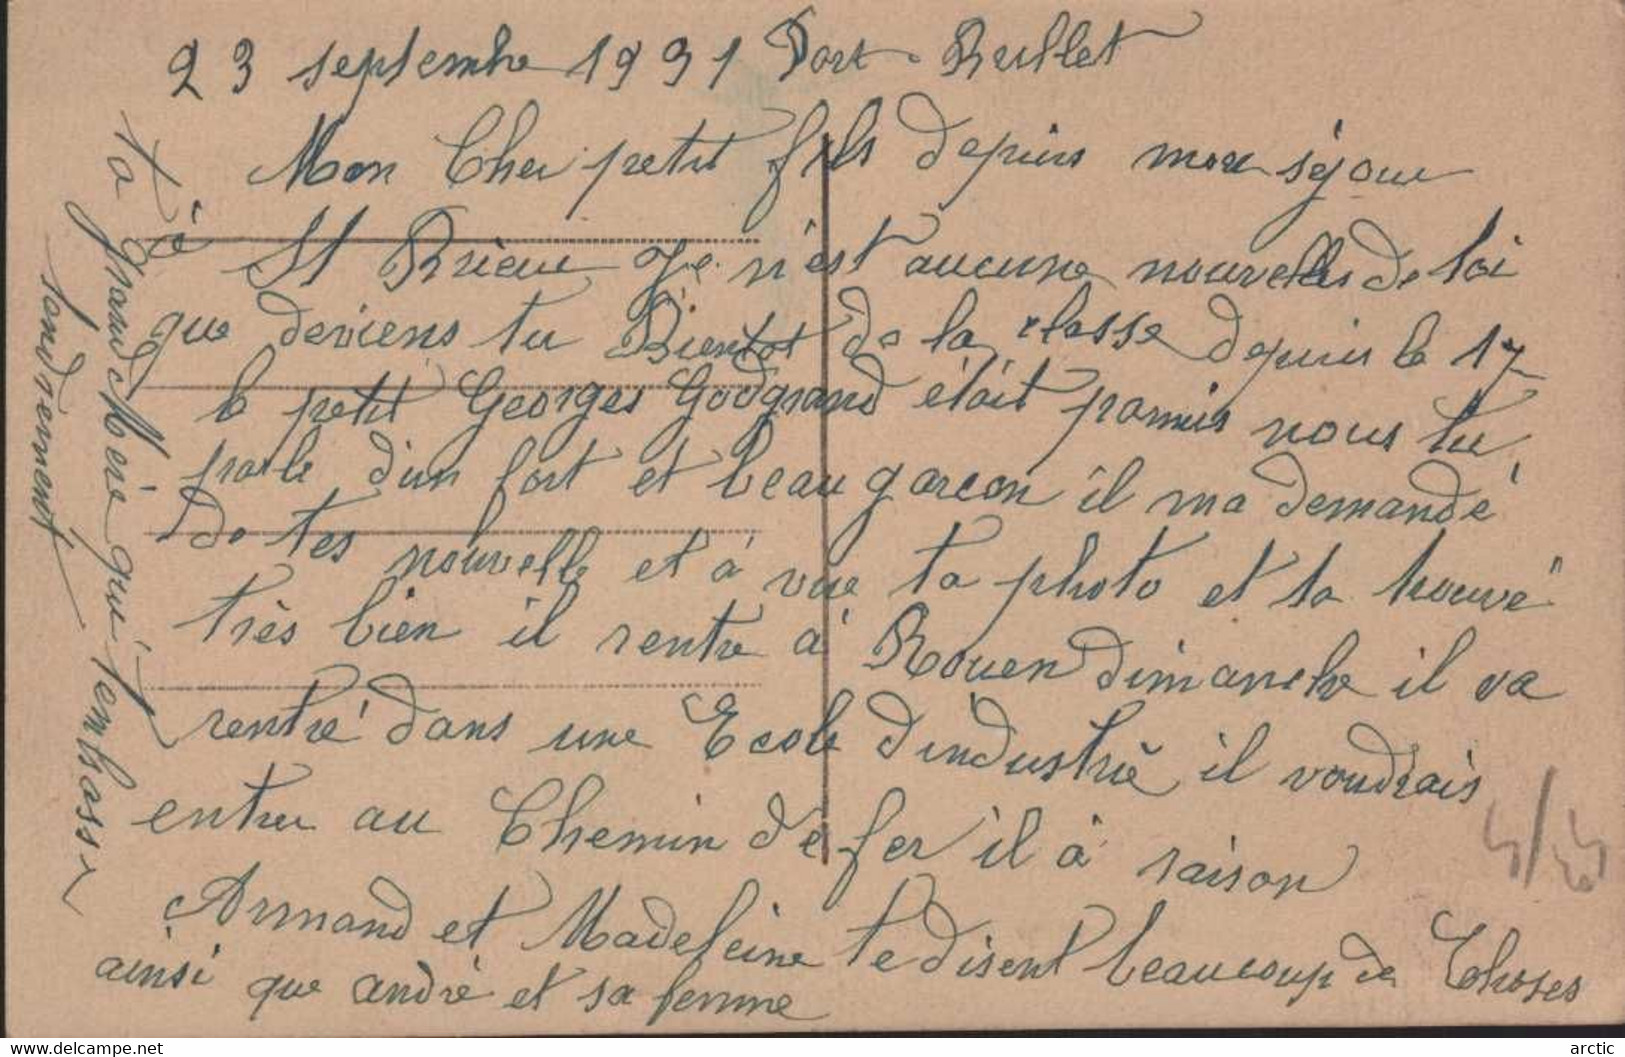 23 septembre 1931 Port-
Mon Cher petit fils depuis mon séjour
à St Brieuc Je n'est aucune nouvelles de toi
que deviens tu Bientot de la classe depuis le 17
le petit Georges Godgrand était parmis nous tu
parle d'un fort et beau garcon il ma demandé
de tes nouvelle et à vue ta photo et ta trouvé
très bien il rentre à Rouen dimanche il va
rentré dans une Ecole d'industrie il voudrais
entrer au Chemin de fer il à raison
Armand et Madeleine te disent beaucoup de Choses
ainsi que andré et sa femme
ta grand Mère qui t'embrasse
tendrement
delcampe.net
arctic